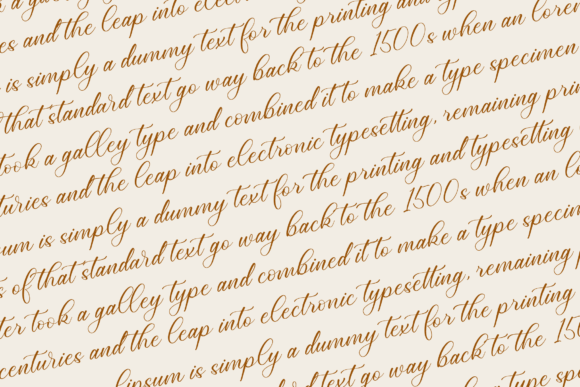 and the leap into
is simply a dummy text for the printing and
that standard text go way back to the 1500s when an
took a galley type and combined it to make a type specimen
turies and the leap into electronic typesetting, remaining
sum is simply a dummy text for the printing and typesetting
s of that standard text go way back to the 1500s when an lo
ter took a galley type and combined it to make a type specim
centuries and the leap into electronic typesetting, remaining
lipsum is simply a dummy text for the printing
standard text go way back to the 150
a type spe